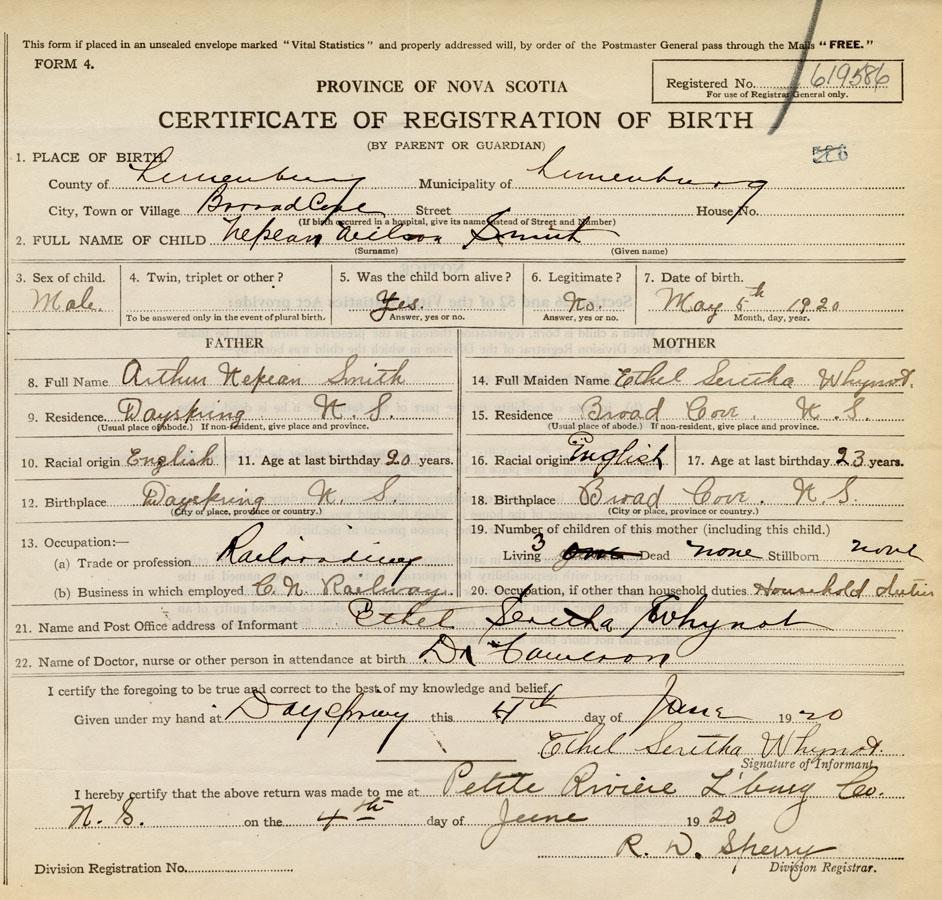 This form if placed in an unsealed envelope marked "Vital Statistics" and properly addressed will, by order of the Postmaster General pass through the Mails "FREE."
FORM 4.
Registered No. 619586
For use of Registrar General only.
PROVINCE OF NOVA SCOTIA
CERTIFICATE OF REGISTRATION OF BIRTH
(BY PARENT OR GUARDIAN)
1. PLACE OF BIRTH
County of Lunenburg Municipality of Lunenburg
City, Town or Village Broad Cove Street House No.
(If birth occurred in a hospital, give its name instead of Street and Number)
2. FULL NAME OF CHILD Nepean Wilson Smith
(Surname) (Given name)
3. Sex of child. 4. Twin, triplet or other? 5. Was the child born alive? 6. Legitimate? 7. Date of birth.
Male. Yes. No. May 5th 1920
To be answered only in the event of plural birth. Answer, yes or no. Answer, yes or no. Month, day, year.
FATHER MOTHER
8. Full Name Arthur Nepean Smith 14. Full Maiden Name Ethel Seretha Whynot.
9. Residence Dayspring N. S. 15. Residence Broad Cove. N. S.
(Usual place of abode.) If non-resident, give place and province. (Usual place of abode.) If non-resident, give place and province.
10. Racial origin English 11. Age at last birthday 20 years. 16. Racial origin English 17. Age at last birthday 23 years.
12. Birthplace Dayspring N. S. 18. Birthplace Broad Cove. N. S.
(City or place, province or country.) (City or place, province or country.)
13. Occupation:— 19. Number of children of this mother (including this child.)
(a) Trade or profession Railroading Living 3 one Dead none Stillborn none
(b) Business in which employed C. N. Railway 20. Occupation, if other than household duties Household duties
21. Name and Post Office address of Informant Ethel Seretha Whynot
22. Name of Doctor, nurse or other person in attendance at birth Dr Cameron
I certify the foregoing to be true and correct to the best of my knowledge and belief.
Given under my hand at Dayspring this 4th day of June 1920
Ethel Seretha Whynot.
Signature of Informant.
I hereby certify that the above return was made to me at Petite Riviere L'burg Co.
N. S. on the 4th day of June 1920
R. D. Sperry
Division Registration No. Division Registrar.